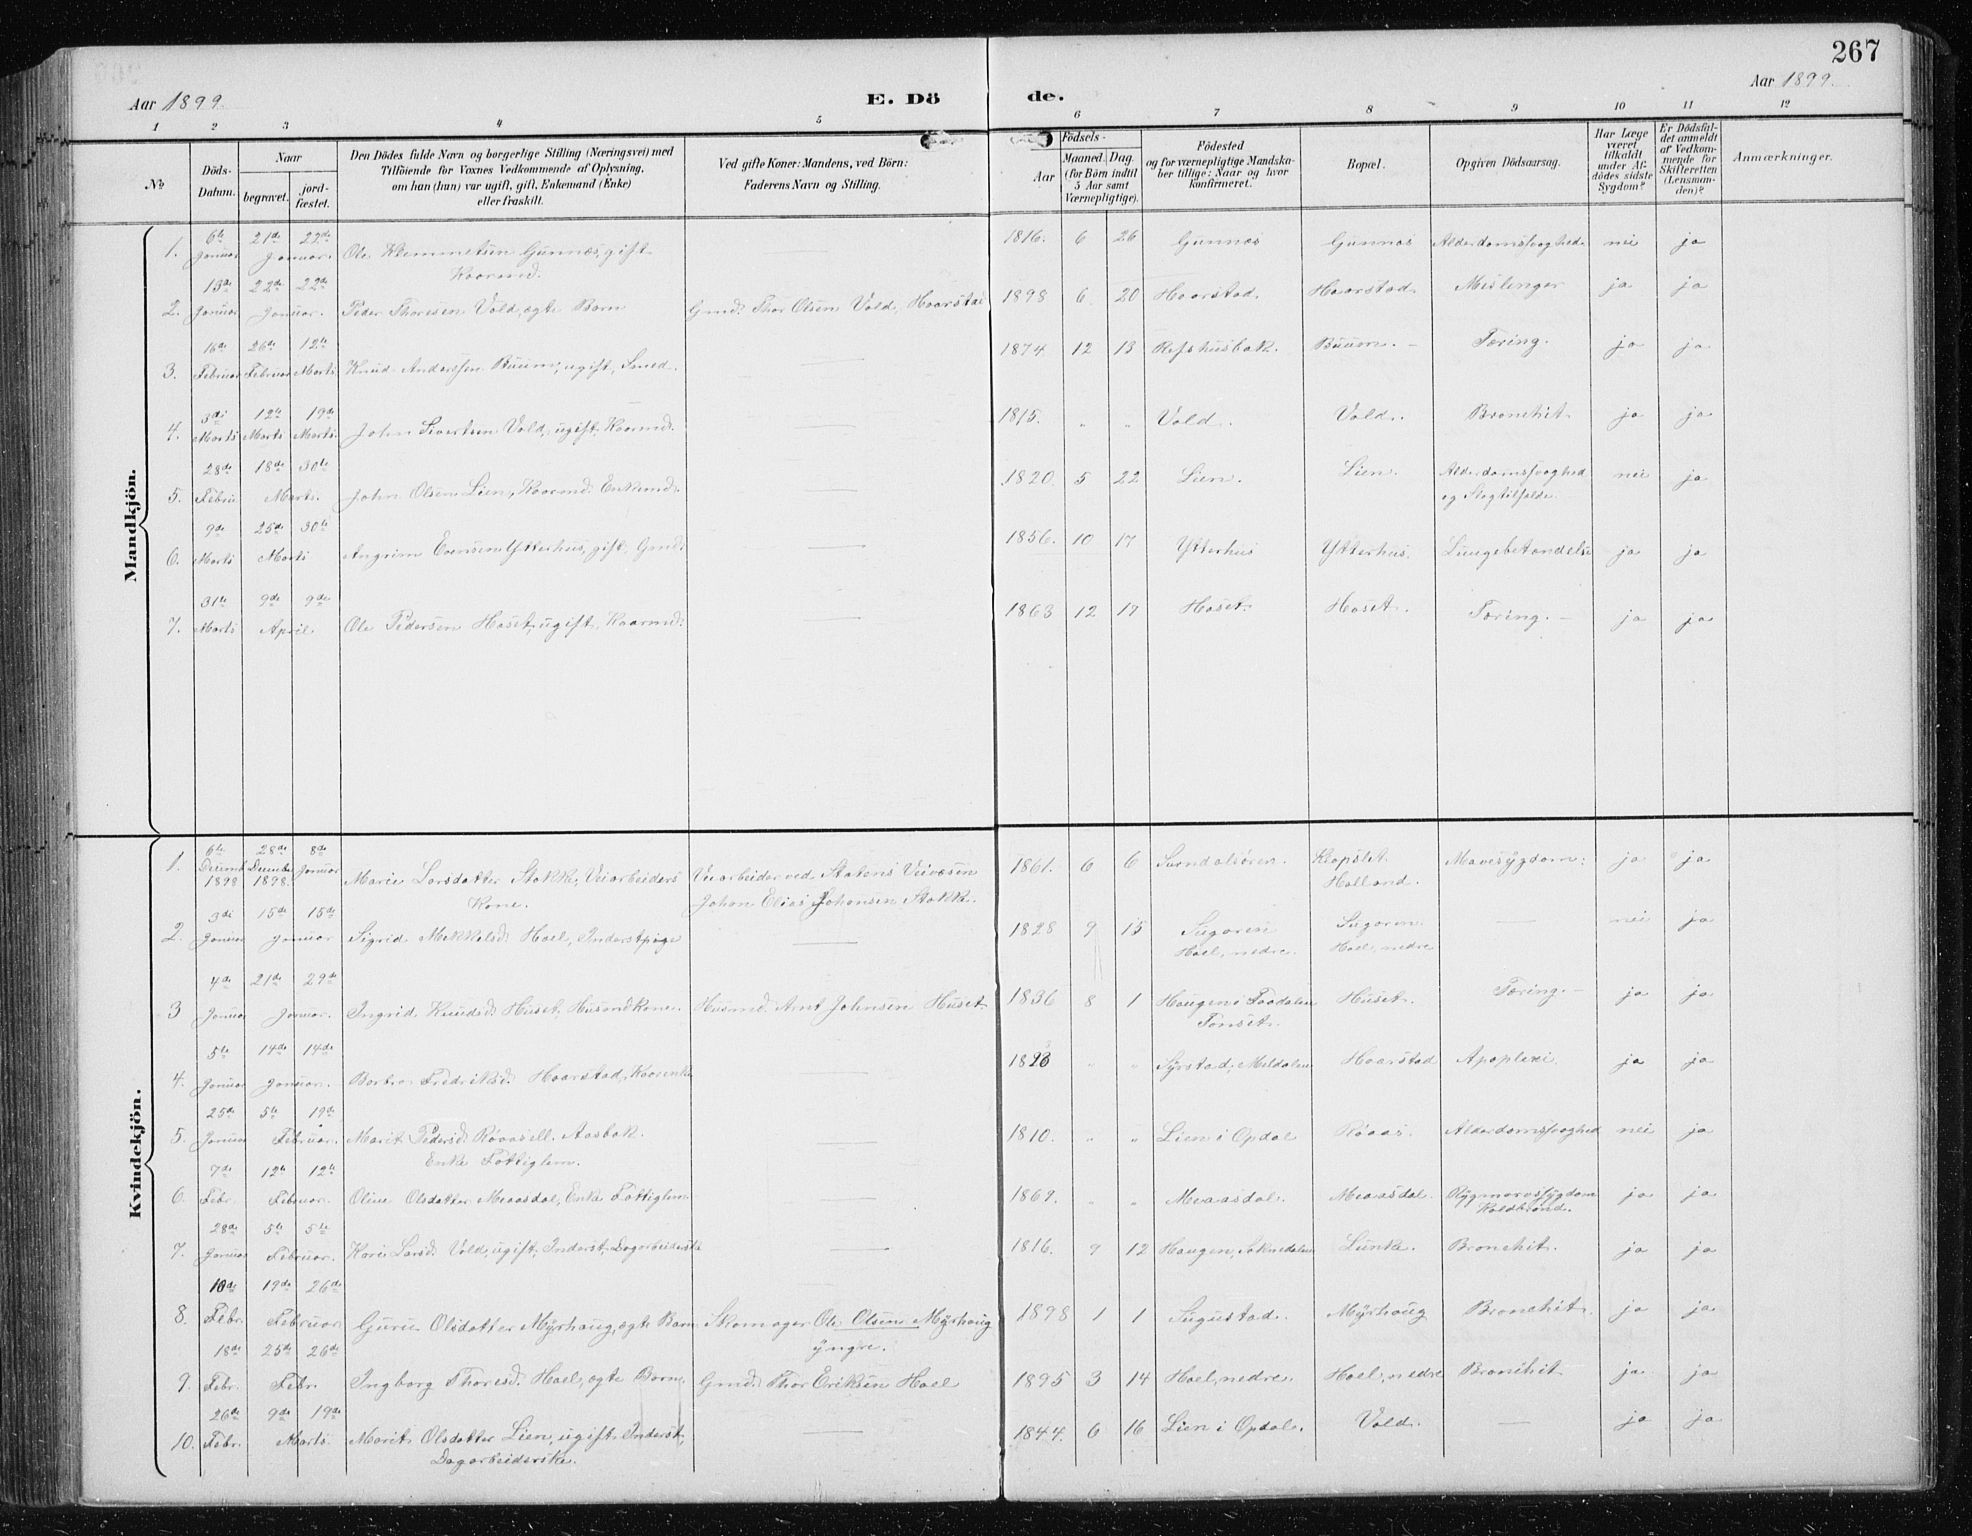 267
Aar 1899.
E. Dö
de.
Aar 1899.
1 2 3 4 5 6 7 8 9 10 11 12
No
Döds-
Datum.
Naar
begravet.
jord-
fæstet.
Den Dödes fulde Navn og borgerlige Stilling (Næringsvei) med
Tilföiende for Voxnes Vedkommende af Oplysning,
om han (hun) var ugift, gift, Enkemand (Enke)
eller fraskilt.
Ved gifte Koner: Mandens, ved Börn:
Faderens Navn og Stilling.
Födsels-
Aar
Maaned. Dag.
(for Börn indtil
5 Aar samt
Værnepligtige).
Födested
og for værnepligtige Mandska-
ber tillige: Naar og hvor
konfirmeret.
Bopæl.
Opgiven Dödsaarsag.
Har Læge
været
tilkaldt
under Af-
dödes sidste
Sygdom?
Er Dödsfal-
det anmeldt
af Vedkom-
mende for
Skifteretten
(Lensman-
den)?
Anmærkninger.
Mandkjön.
6te 21de 22de
1. Januar Januar. Ole Klemmetsen Gunnes, gift 1816. 6 26 Gunnes Gunnes Alderdomssvaghed nei ja
Kaarmd.
13de 22de 22de
2. Januar Januar. Peder Thoresen Vold, ægte Barn Gmd. Thor Olsen Vold, Haarstad 1898 6 20 Haarstad. Haarstad. Meslinger ja ja
16de 26de 12te
3. Februar Februar Marts Knud Anderssen Buum, ugift, Smed. 1874 12 13 Refshusbak. Buum. Tæring. ja ja
3di 12te 19de
4. Marts Marts Marts. John Sivertsen Vold, ugift, Kaarmd. 1815. " " Vold. Vold. Bronchit. ja ja
28de 18de 30te
5. Febru Marts. John Olsen Lien, Kaarmd. Enkemd. 1820. 5 22 Lien. Lien. Alderdomssvaghed nei ja
og Slagtilfælde.
9de 25de 30te
6. Marts Marts Angrim Evensen Ytterhus, gift, Gmd. 1856. 10 17 Ytterhus Ytterhus. Lungebetændelse ja ja
31te 9de 9de
7. Marts April Ole Pedersen Haset, ugift, Kaarmd. 1863 12 17 Haset. Haset. Tæring. ja ja
Kvindekjön.
6te 28de 8de
1. Decemb Decembe Januar
1898 1898. Marie Larsdatter Stokke, Veiarbeiders Veiarbeider ved Statens Veivæsen 1861. 6 6 Surndalsören. Mavesygdom. ja ja
Kone. Johan Elias Johansen Stokke. Holland.
3di 15de 15de
2. Januar Januar Sigrid Mikkelsd. Hoel, Inderstpige 1828 9 15 Sugaren Sugaren nei ja
Hoel, nedre. Hoel, nedre
4de 21de 29de
3 Januar Januar. Ingrid Knudsd. Huset, Husmdkone. Husmd. Arnt Johnsen Huset. 1836 8 1 Haugen i Taadalen Huset. Tæring. ja ja
Tönset.
5te 14de 14de
4. Januar Januar. Borbro Fredriksd. Haarstad, Kaarenke " " Syrstad, Meldalen Haarstad Apoplexi ja ja
25de 5te 19de
5. Januar Februar. Marit Pedersd. Røaasell. Aasbak. 1810. " " Lien i Opdal Røaas. Alderdomssvaghed nei ja
Enke Fattiglem.
7de 12te 12te
6. Febr. Februar. Oline Olsdatter Meaasdal, Enke Fattiglem. 1869. " " Meaasdal. Meaasdal. Rygmarvssygdom ja ja
Koldbrand.
28de 5te 5te
7. Januar Februar. Kari Larsd. Vold, ugift, Inderst, Dagarbeiderske 1816. 9 12 Haugen, Soknedalen Lunke. Bronchit. ja ja
10de 19de 26de
8. Febr. Februar Guru Olsdatter Myrhaug, ægte Barn Skomager Ole Olsen Myrhaug 1898 1 1 Sugustad. Myrhaug Bronchit. ja ja
yngre.
18de 25de 26de
9. Febr. Febr. Ingborg Thoresd. Hoel, ægte Barn. Gmd. Thor Eriksen Hoel 1895 3 14 Hoel, nedre. Hoel, nedre Bronchit ja ja
26de 9de 19de
10. Febr. Marts. Marit Olsdatter Lien, ugift Inderst, 1844. 6 16 Lien i Opdal. Vold. ja ja
Dagarbeiderske.